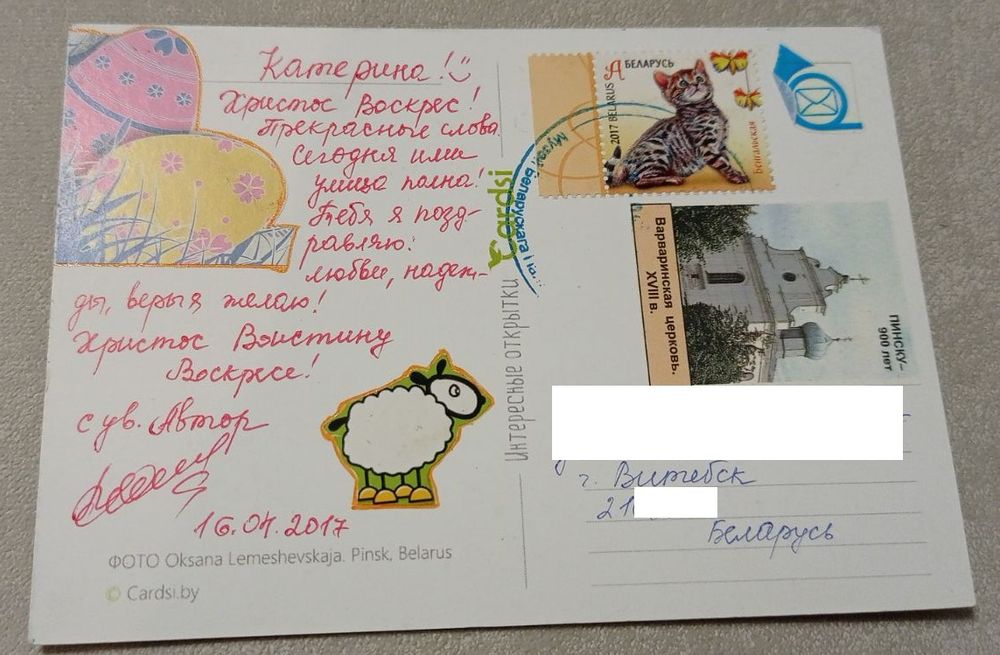 Катерина!
Христос Воскрес!
Прекрасные слова
Сегодня ими
улица полна!
Тебя я позд-
равляю:
любви, надеж-
ды, веры я желаю!
Христос Воистину
Воскресе!
с ув. Автор
16.04.2017
ФОТО Oksana Lemeshevskaja. Pinsk, Belarus
© Cardsi.by
Интересные открытки
Cardsi
А БЕЛАРУСЬ
2017 BELARUS
Бенгальская
Музей Беларускага
Варваринская церковь.
XVIII в.
ПИНСКУ-
900 лет
г. Витебск
21
Беларусь